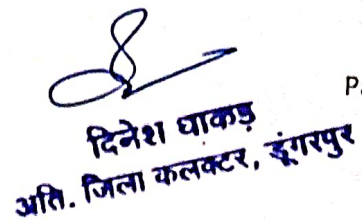 P.
दिनेश धाकड़
अति. जिला कलक्टर, डूंगरपुर